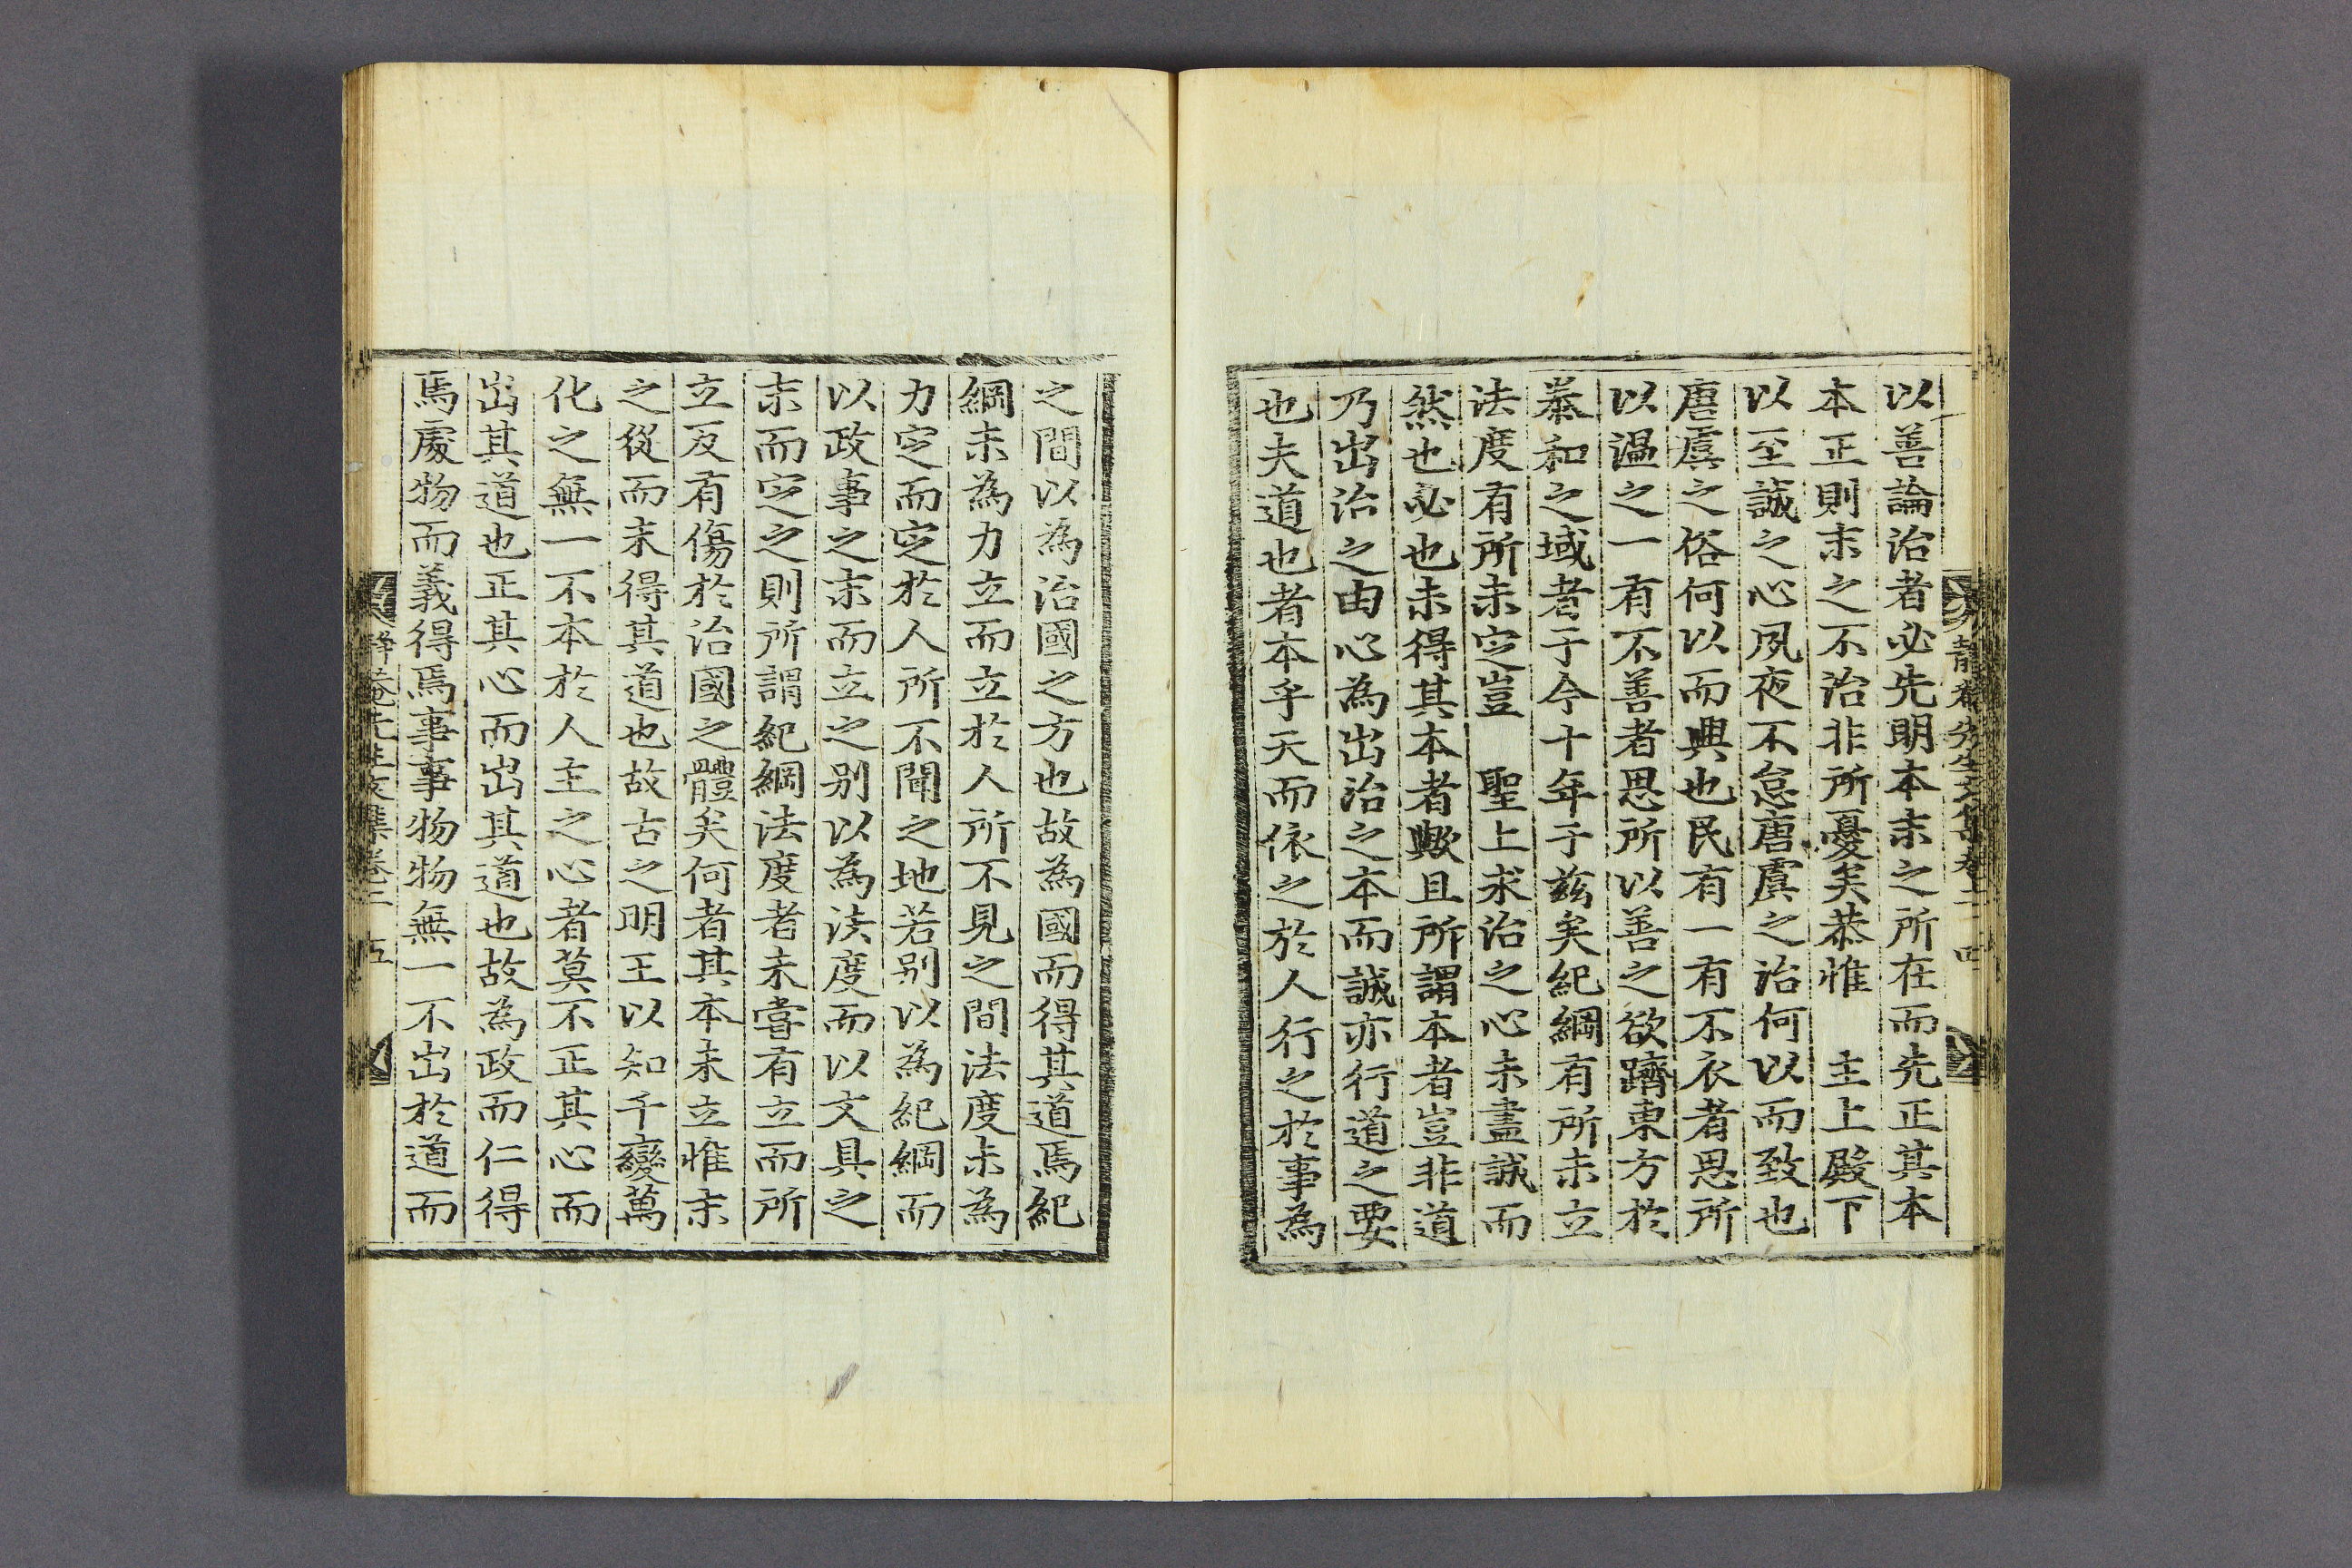 以善論治者必先明本末之所在而先正其本
本正則末之不治非所憂矣恭惟 主上殿下
以至誠之心夙夜不怠唐虞之治何以而致也
唐虞之俗何以而興也民有一有不衣者思所
以溫之一有不善者思所以善之欲躋東方於
泰和之域者于今十年于玆矣紀綱有所未立
法度有所未定豈 聖上求治之心未盡誠而
然也必也未得其本者歟且所謂本者豈非道
乃出治之由心為出治之本而誠亦行道之要
也夫道也者本乎天而依之於人行之於事為
之間以為治國之方也故為國而得其道焉紀
綱未為力立而立於人所不見之間法度未為
力定而定於人所不聞之地若别以為紀綱而
以政事之末而立之别以為法度而以文具之
末而定之則所謂紀綱法度者未嘗有立而所
立反有傷於治國之體矣何者其本未立惟末
之從而未得其道也故古之明王以知千變萬
化之無一不本於人主之心者莫不正其心而
出其道也正其心而出其道也故為政而仁得
焉處物而義得焉事事物物無一不出於道而
先生文集卷二 五